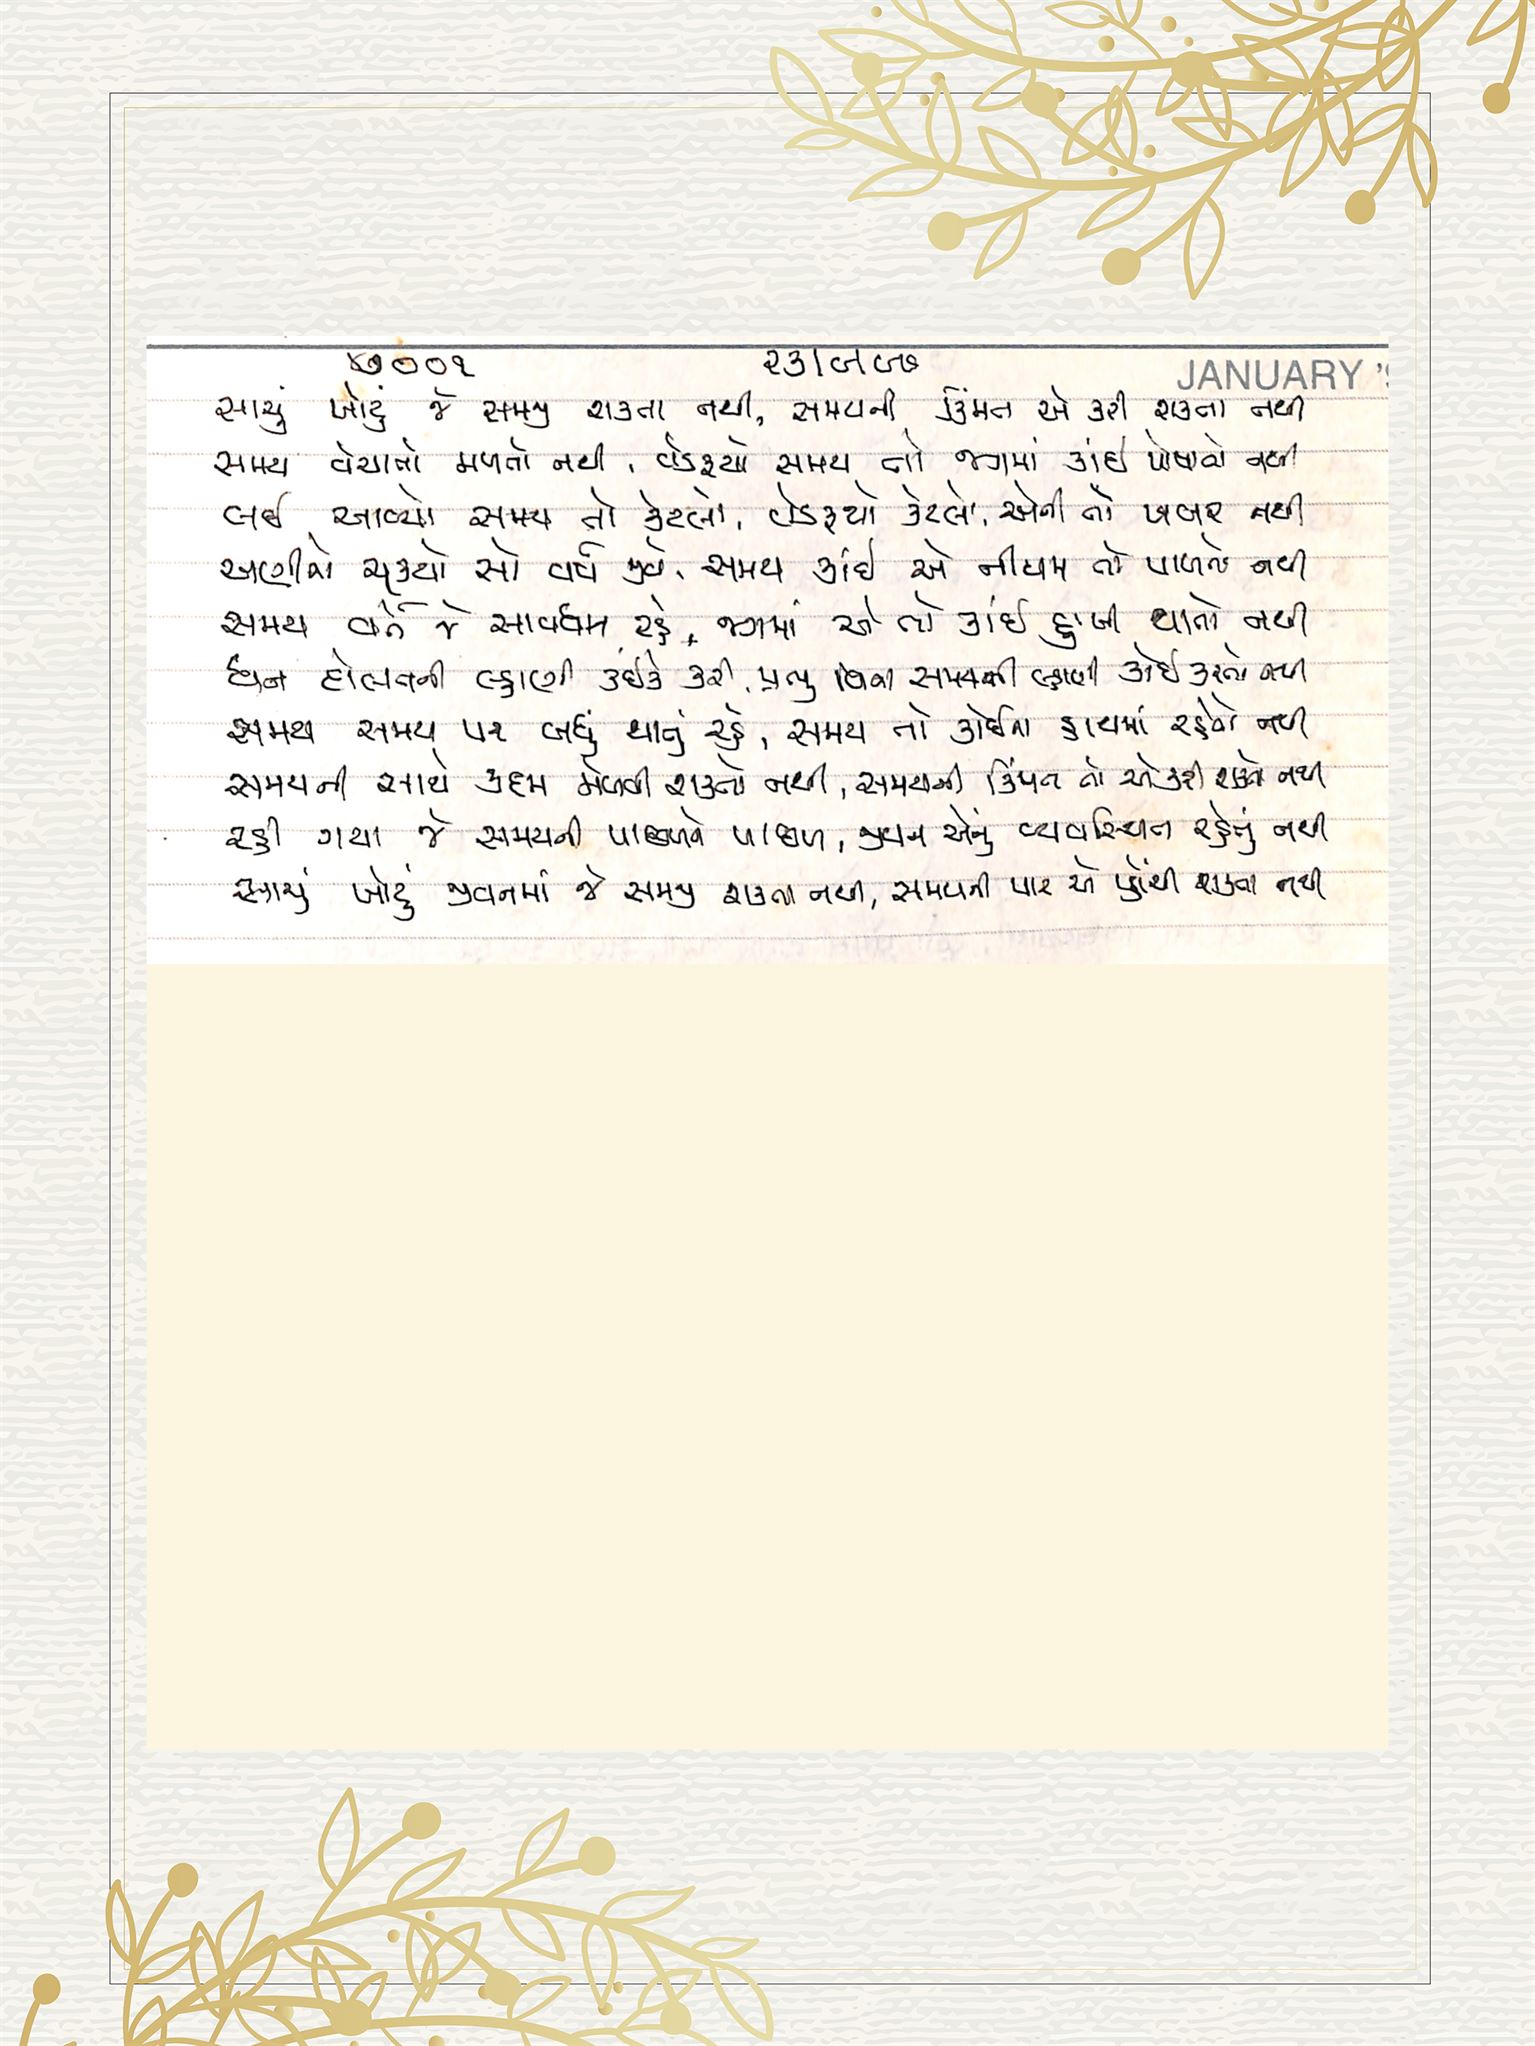 ૪૭૦૦૧ ૨૩/૯/૯૭ JANUARY '9
સાચું ખોટું જે સમજી શકતા નથી, સમયની કિંમત એ કરી શકતા નથી
સમય વેચાતો મળતો નથી, વેડફયો સમય તો જગમાં કાંઈ પોષાતો નથી
લઈ આવ્યો સમય તો કેટલો, વેડફયો કેટલો, એની તો ખબર નથી
અણીનો ચૂકયો સો વર્ષ જીવે, સમય કાંઈ એ નીયમ તો પાળતો નથી
સમય વર્તે જે સાવધાન રહે, જગમાં એ તો કાંઈ દુઃખી થાતો નથી
ધન દોલતની લ્હાણી કંઈકે કરી, પ્રભુ વિના સમયની લ્હાણી કોઈ કરતો નથી
સમય સમય પર બધું થાતું રહે, સમય તો કોઈના હાથમાં રહેતો નથી
સમયની સાથે કદમ મેળવી શકતો નથી, સમયની કિંમત તો એ કરી શકતો નથી
રહી ગયા જે સમયની પાછળને પાછળ, જીવન એનું વ્યવસ્થિત રહેતું નથી
સાચું ખોટું જીવનમાં જે સમજી શકતા નથી, સમયની પાર એ પ્હોંચી શકતા નથી